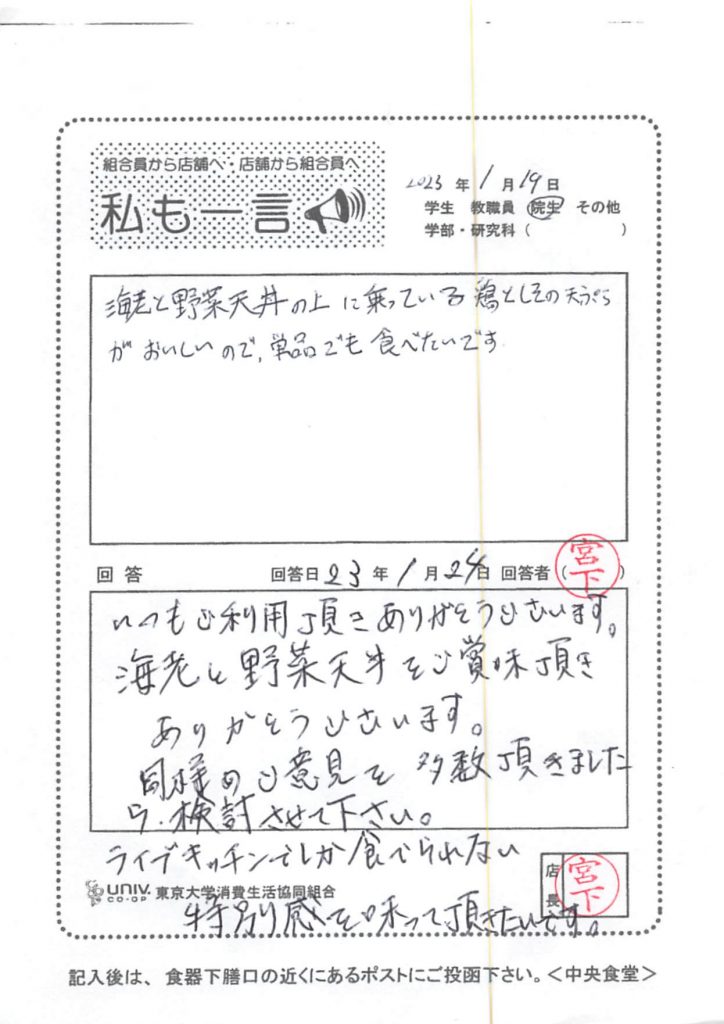 組合員から店舗へ・店舗から組合員へ
私も一言
2023 年 1 月 19 日
学生 教職員 院生 その他
学部・研究科 ( )
海老と野菜天丼の上に乗っている鶏としその天ぷら
がおいしいので、単品でも食べたいです
回答 回答日 23 年 1 月 24 日 回答者 (宮下)
いつもご利用頂きありがとうございます。
海老と野菜天丼をご賞味頂き
ありがとうございます。
同様のご意見を多数頂きました
ら、検討させて下さい。
ライブキッチンでしか食べられない
特別感を味って頂きたいです。
UNIV. CO-OP 東京大学消費生活協同組合
店長 宮下
記入後は、食器下膳口の近くにあるポストにご投函下さい。<中央食堂>